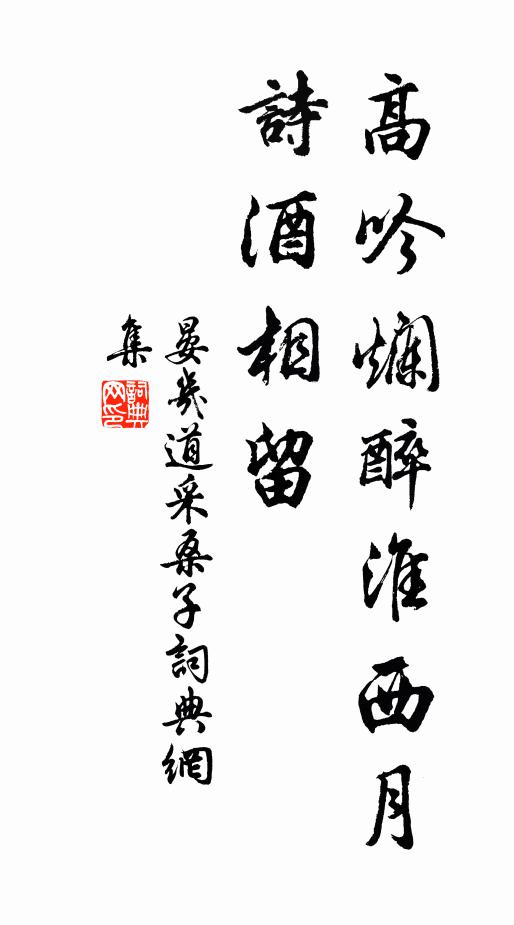 高吟爛醉淮西月
詩酒相留
晏幾道采桑子詞典網
集
詞典網印